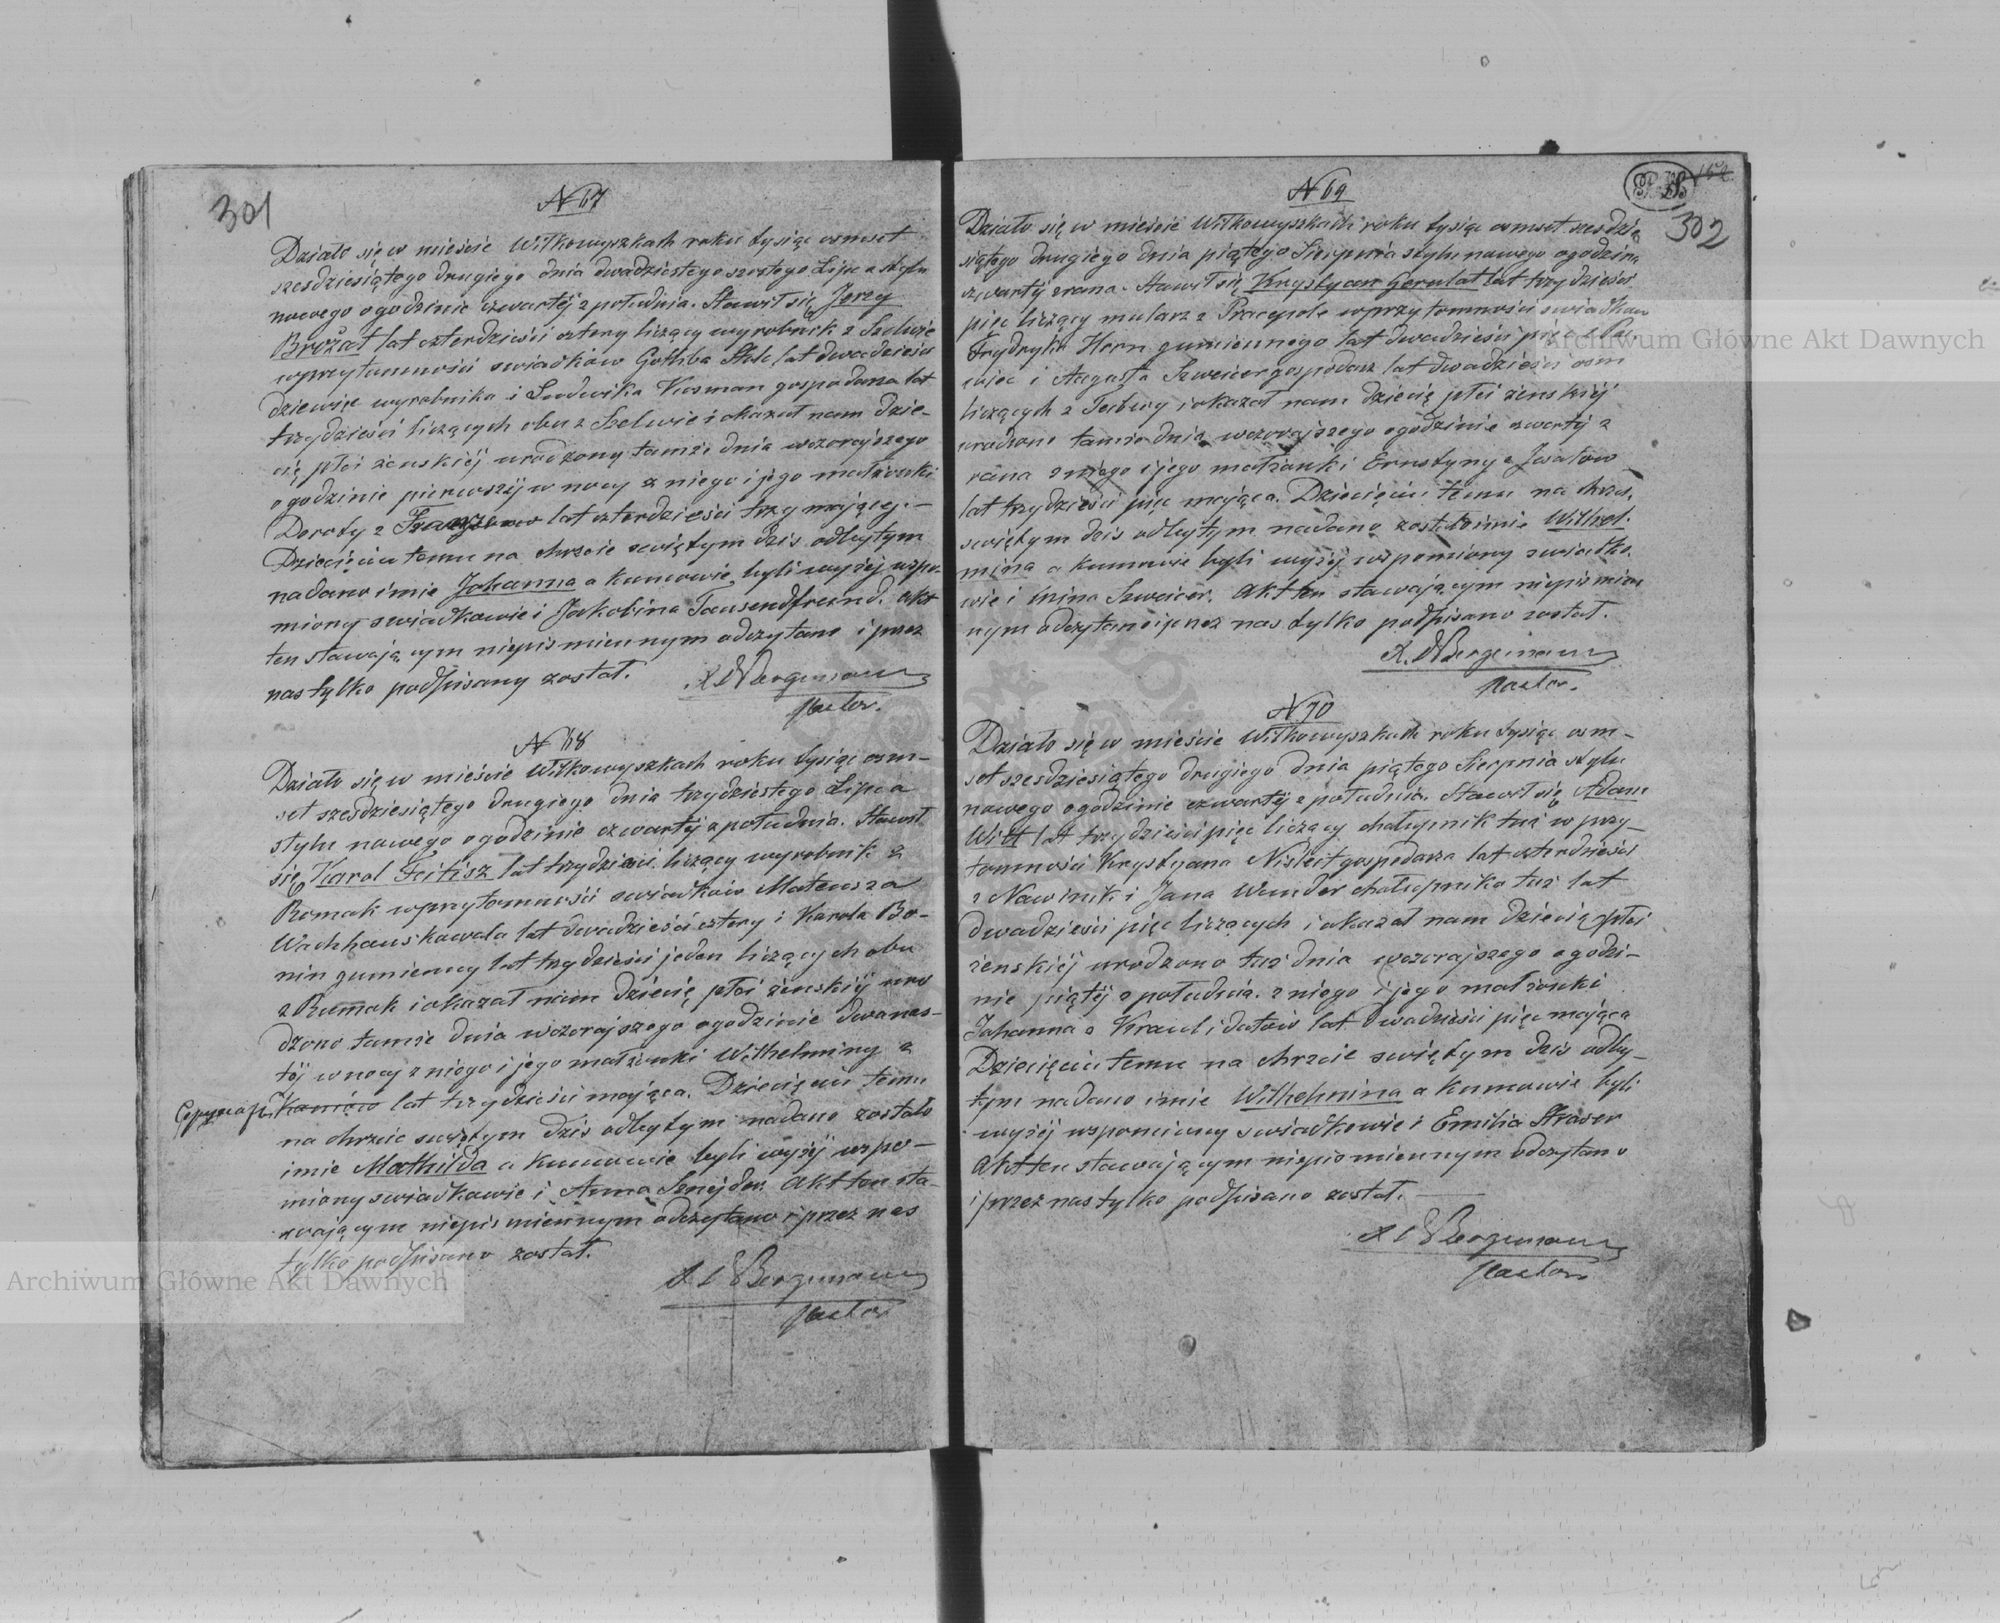 301
N 67
Działo się w mieście Wiłkowyszkach roku tysiąc osmset
szesdziesiątego drugiego dnia dwadziestego szostego Lipca stylu
nowego ogodzinie czwartéj z południa. Stawił się Jerzy
Brożat lat czterdzieści cztery liczący wyrobnik z Szelwie
wprzytomności swiadków Gotliba lat dwadzieścia
dziewięc wyrobnika i Ludwika Kusman gospodarza lat
trzydzieści liczących obu z Szelwie i okazał nam dzie-
cię płci żenskiéj urodzony tamże dnia wczorajszego
ogodzinie pierwszéj w nocy z niego i jego małżonki
Doroty z lat czterdzieści trzy mającej. —
Dziecięciu temu na chrzcie swiętym dzis odbytym
nadano imie Johanna a kumowie byli wyżéj wspo-
miony swiadkowie i Jakobina Tausendfreund. Akt
ten stawającym niepismiennym odczytano i przez
nas tylko podpisany został.
Bergemann
Pastor.
N 68
Działo się w mieście Wiłkowyszkach roku tysiąc osm-
set szesdziesiątego drugiego dnia trzydziestego Lipca
stylu nowego ogodzinie czwartéj z południa. Stawił
się Karol Feitisz lat trzydzieści liczący wyrobnik z
Rumak wprzytomności swiadków Mateusza
Wachhaus kowala lat dwadzieści cztery i Karola Bo-
nin gumienny lat trzydzieści jeden liczących obu
z Rumak i okazał nam dziecię płci żenskiéj uro
dzono tamże dnia wczorajszego ogodzinie dwanas-
téj w nocy z niego i jego małżonki Wilhelminy z
lat trzydzieści mająca. Dziecięciu temu
na chrzcie swiętym dzis odbytym nadano zostało
imie Mathilda a kumowie byli wyżéj wspo-
miony swiadkowie i Anna Sznejder. Akt ten sta-
wającym niepismiennym odczytano i przez nas
tylko podpisano został.
Bergemann
Pastor
302
N 69
Działo się w mieście Wiłkowyszkach roku tysiąc osmset szesdzie
siątego drugiego dnia piątego Sierpnia stylu nowego ogodzinie
czwartéj zrana. Stawił się Krystyan Gerulat lat trzydzieści
pięc liczący mularz z wprzytomności swiadków
Frydryka Horn gumiennego lat dwadzieści pięc z
i Augusta Szweicer gospodarz lat dwadzieści osm
liczących z i okazał nam dziecię płci żenskiéj
urodzono tamże dnia wczorajszego ogodzinie czwartéj z
rana z niego i jego małżonki Ernstyny z
lat trzydzieści pięc mająca. Dziecięciu temu na chrzcie
swiętym dzis odbytym nadano zostało imie Wilhel-
mina a kumowie byli wyżéj wspomiony swiadko
wie i Mina Szweicer. Akt ten stawającym niepismien
nym odczytano i przez nas tylko podpisano został.
Bergemann
Pastor.
N 70
Działo się w mieście Wiłkowyszkach roku tysiąc osm-
set szesdziesiątego drugiego dnia piątego Sierpnia stylu
nowego ogodzinie czwartéj z południa. Stawił się Adam
Witt lat trzydzieści pięc liczący chałupnik tuż w przy-
tomności Krystyana gospodarza lat czterdzieści
z Nawinik i Jana Wunder chałupnika tuż lat
dwadzieści pięc liczących i okazał nam dziecią płci
żenskiéj urodzono tuż dnia wczorajszego ogodzi-
nie piątéj z południa z niego i jego małżonki
Johanna z lat dwadzieści pięc mająca
Dziecięciu temu na chrzcie swiętym dzis odby-
tym nadano imie Wilhelmina a kumowie byli
wyżéj wspomiony swiadkowie i Emilia Straser
Akt ten stawającym niepismiennym odczytano
i przez nas tylko podpisano został.
Bergemann
Pastor
Archiwum Główne Akt Dawnych
Archiwum Główne Akt Dawnych